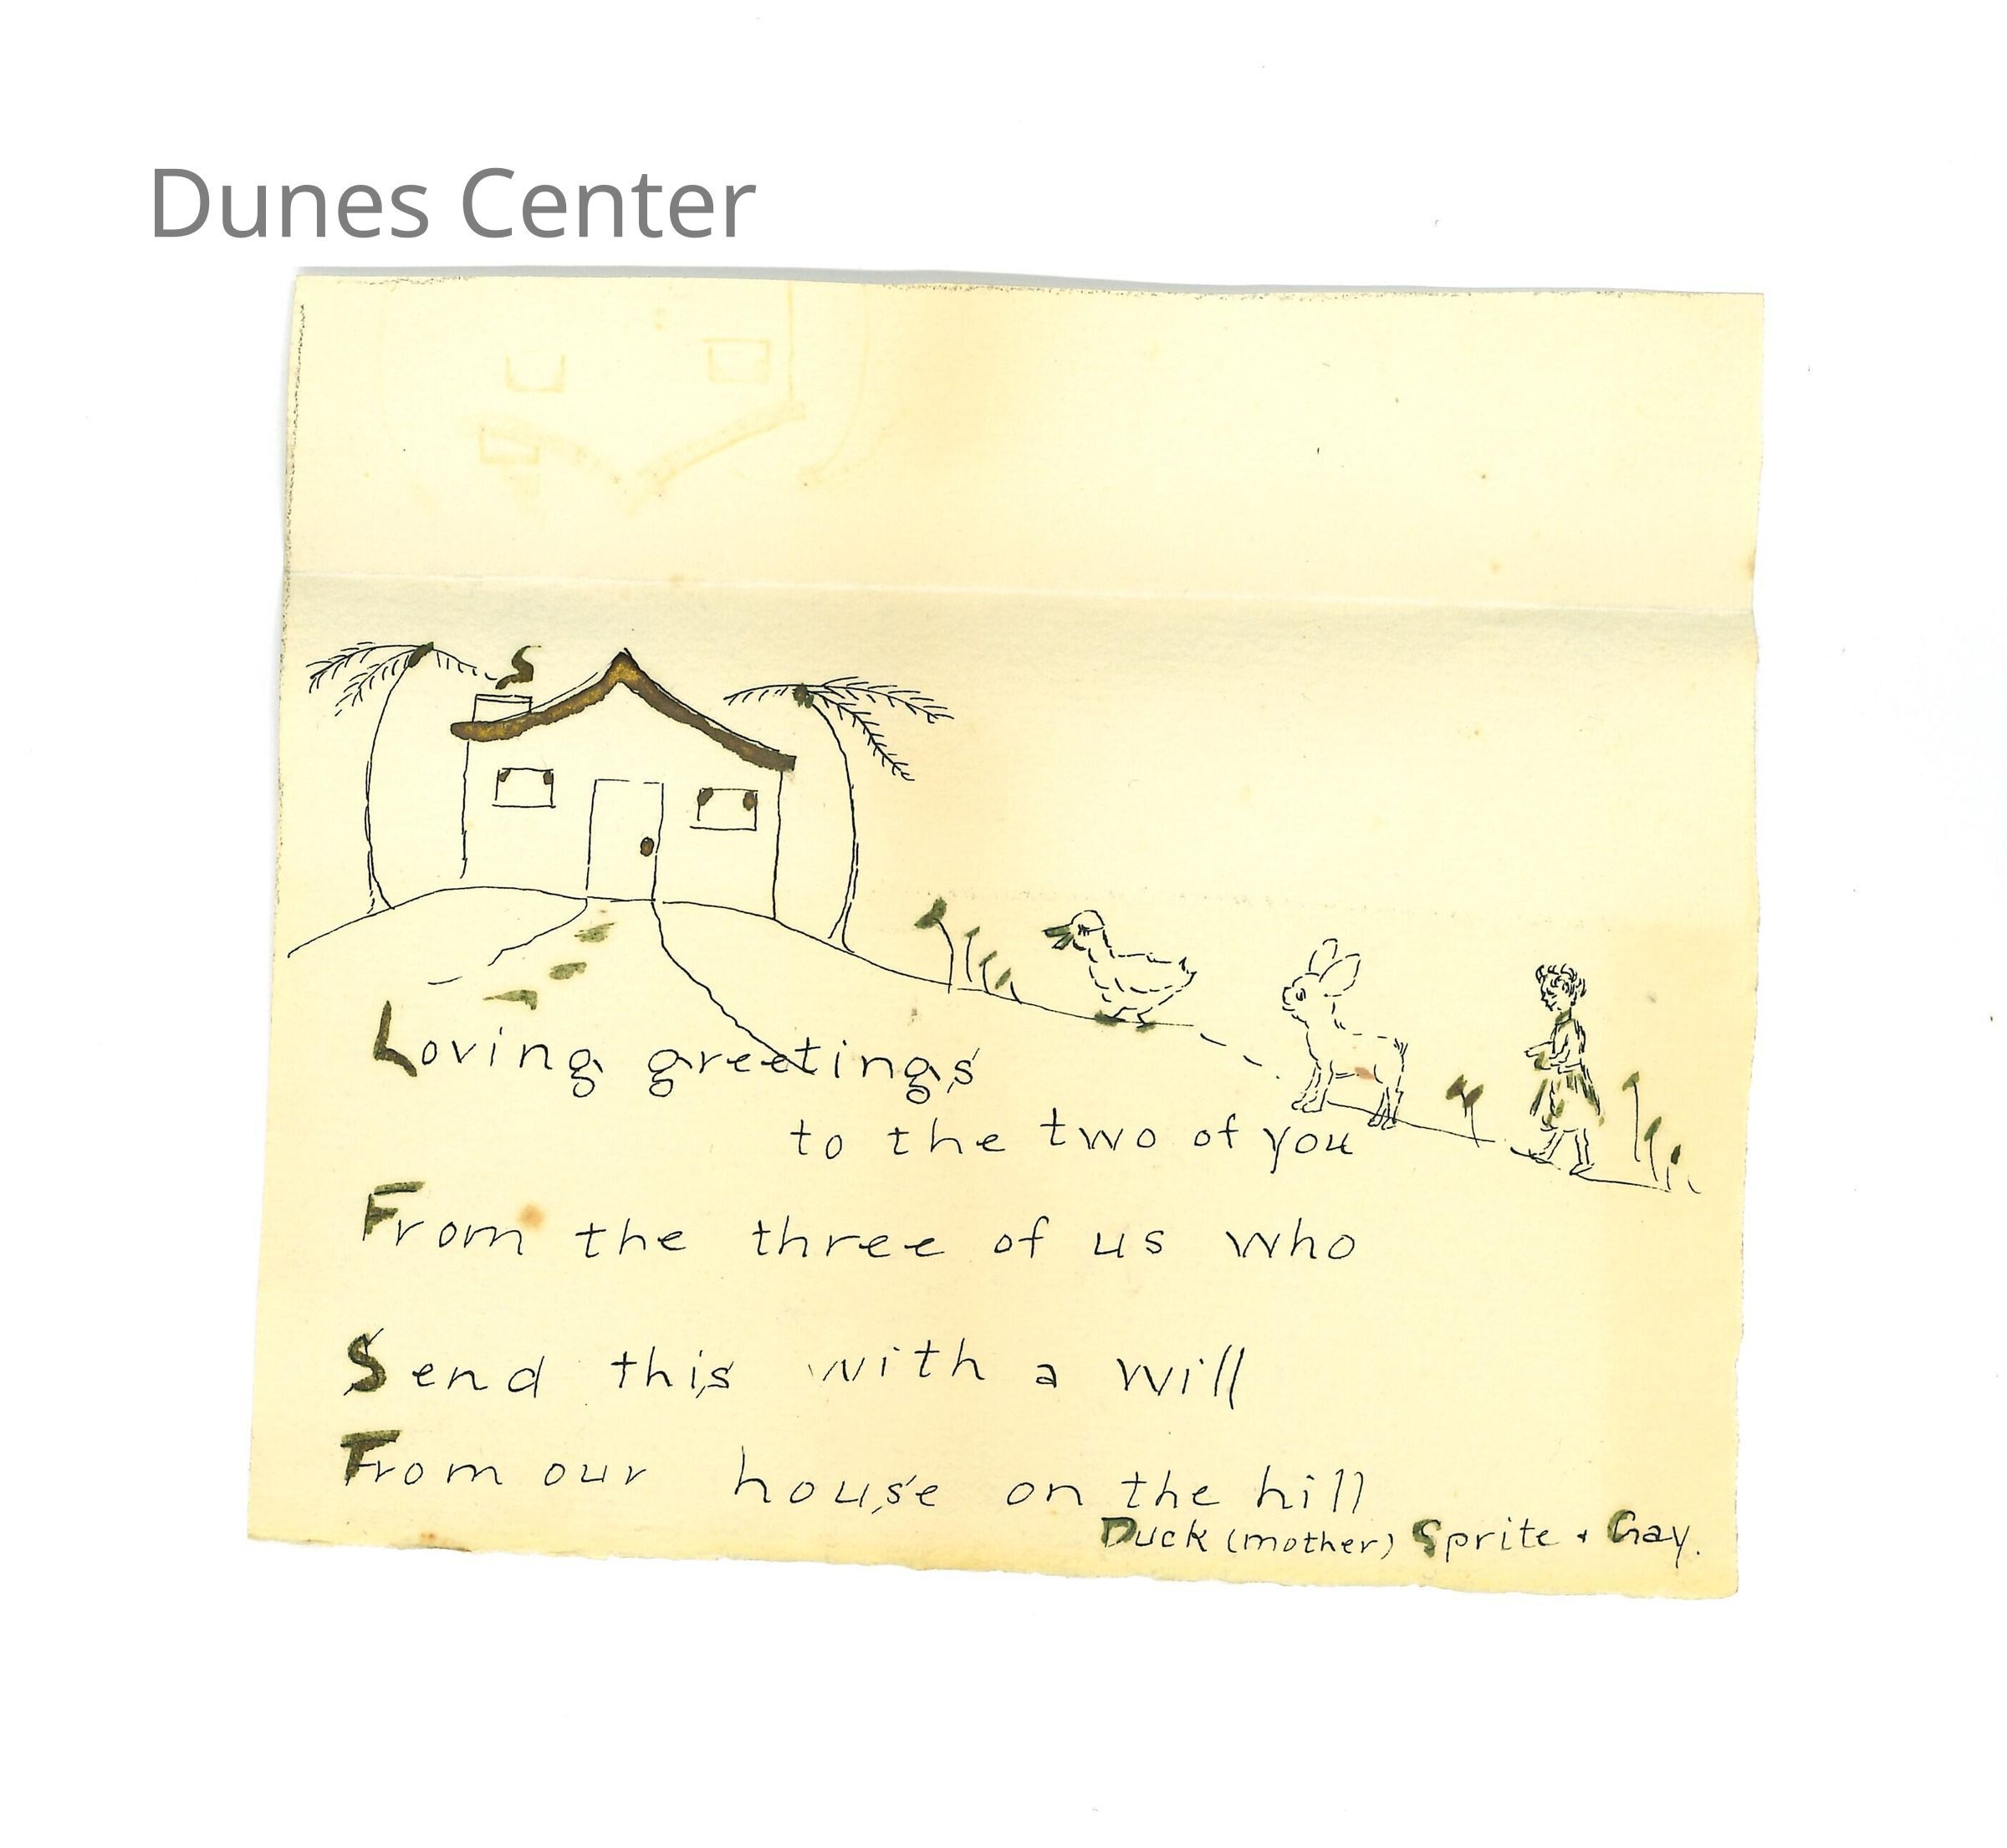 Dunes Center
Loving greetings
to the two of you
From the three of us who
Send this with a will
From our house on the hill
Duck (mother) Sprite + Gay.